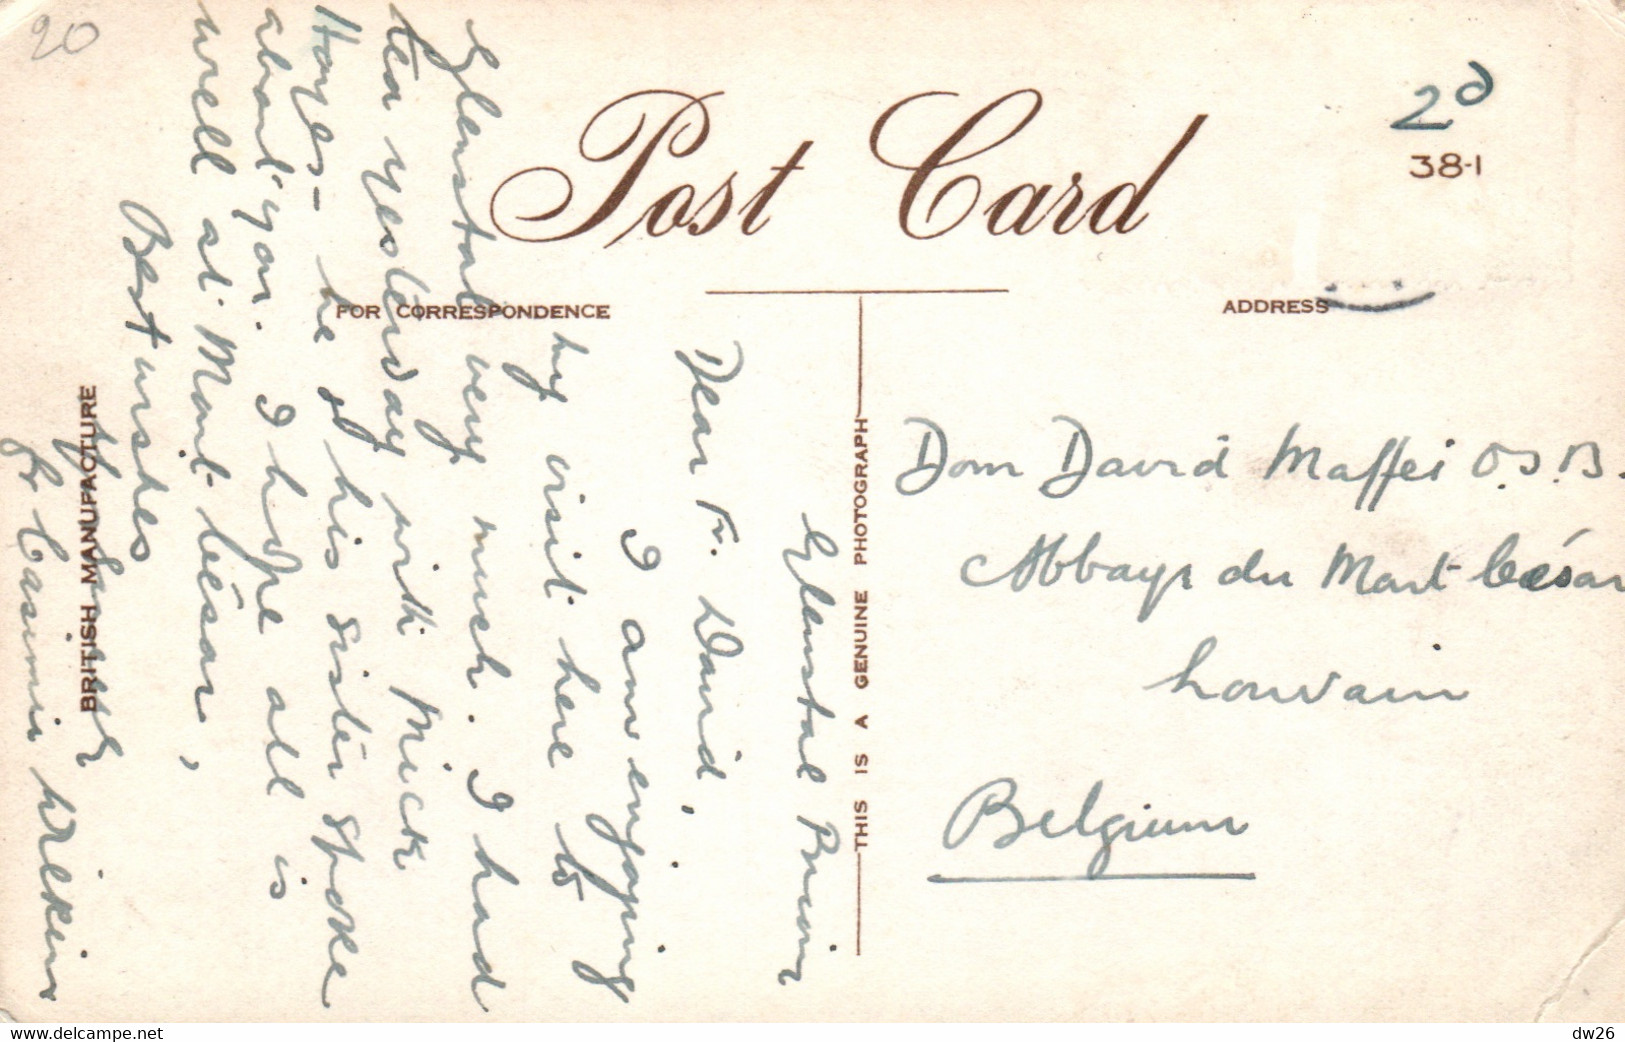 20
Post Card
2d
38-1
FOR CORRESPONDENCE
ADDRESS
BRITISH MANUFACTURE
THIS IS A GENUINE PHOTOGRAPH
Glenstal Priory
Dear Fr. David,
I am enjoying
my visit here to
Glenstal very much. I had
tea yesterday with Mick
Hayes - he & his sister spoke
about you. I hope all is
well at Mont-César,
Best wishes
Fr Casimir
Dom David Maffei O.S.B.
Abbaye du Mont-César
Louvain
Belgium
www.delcampe.net
dw26